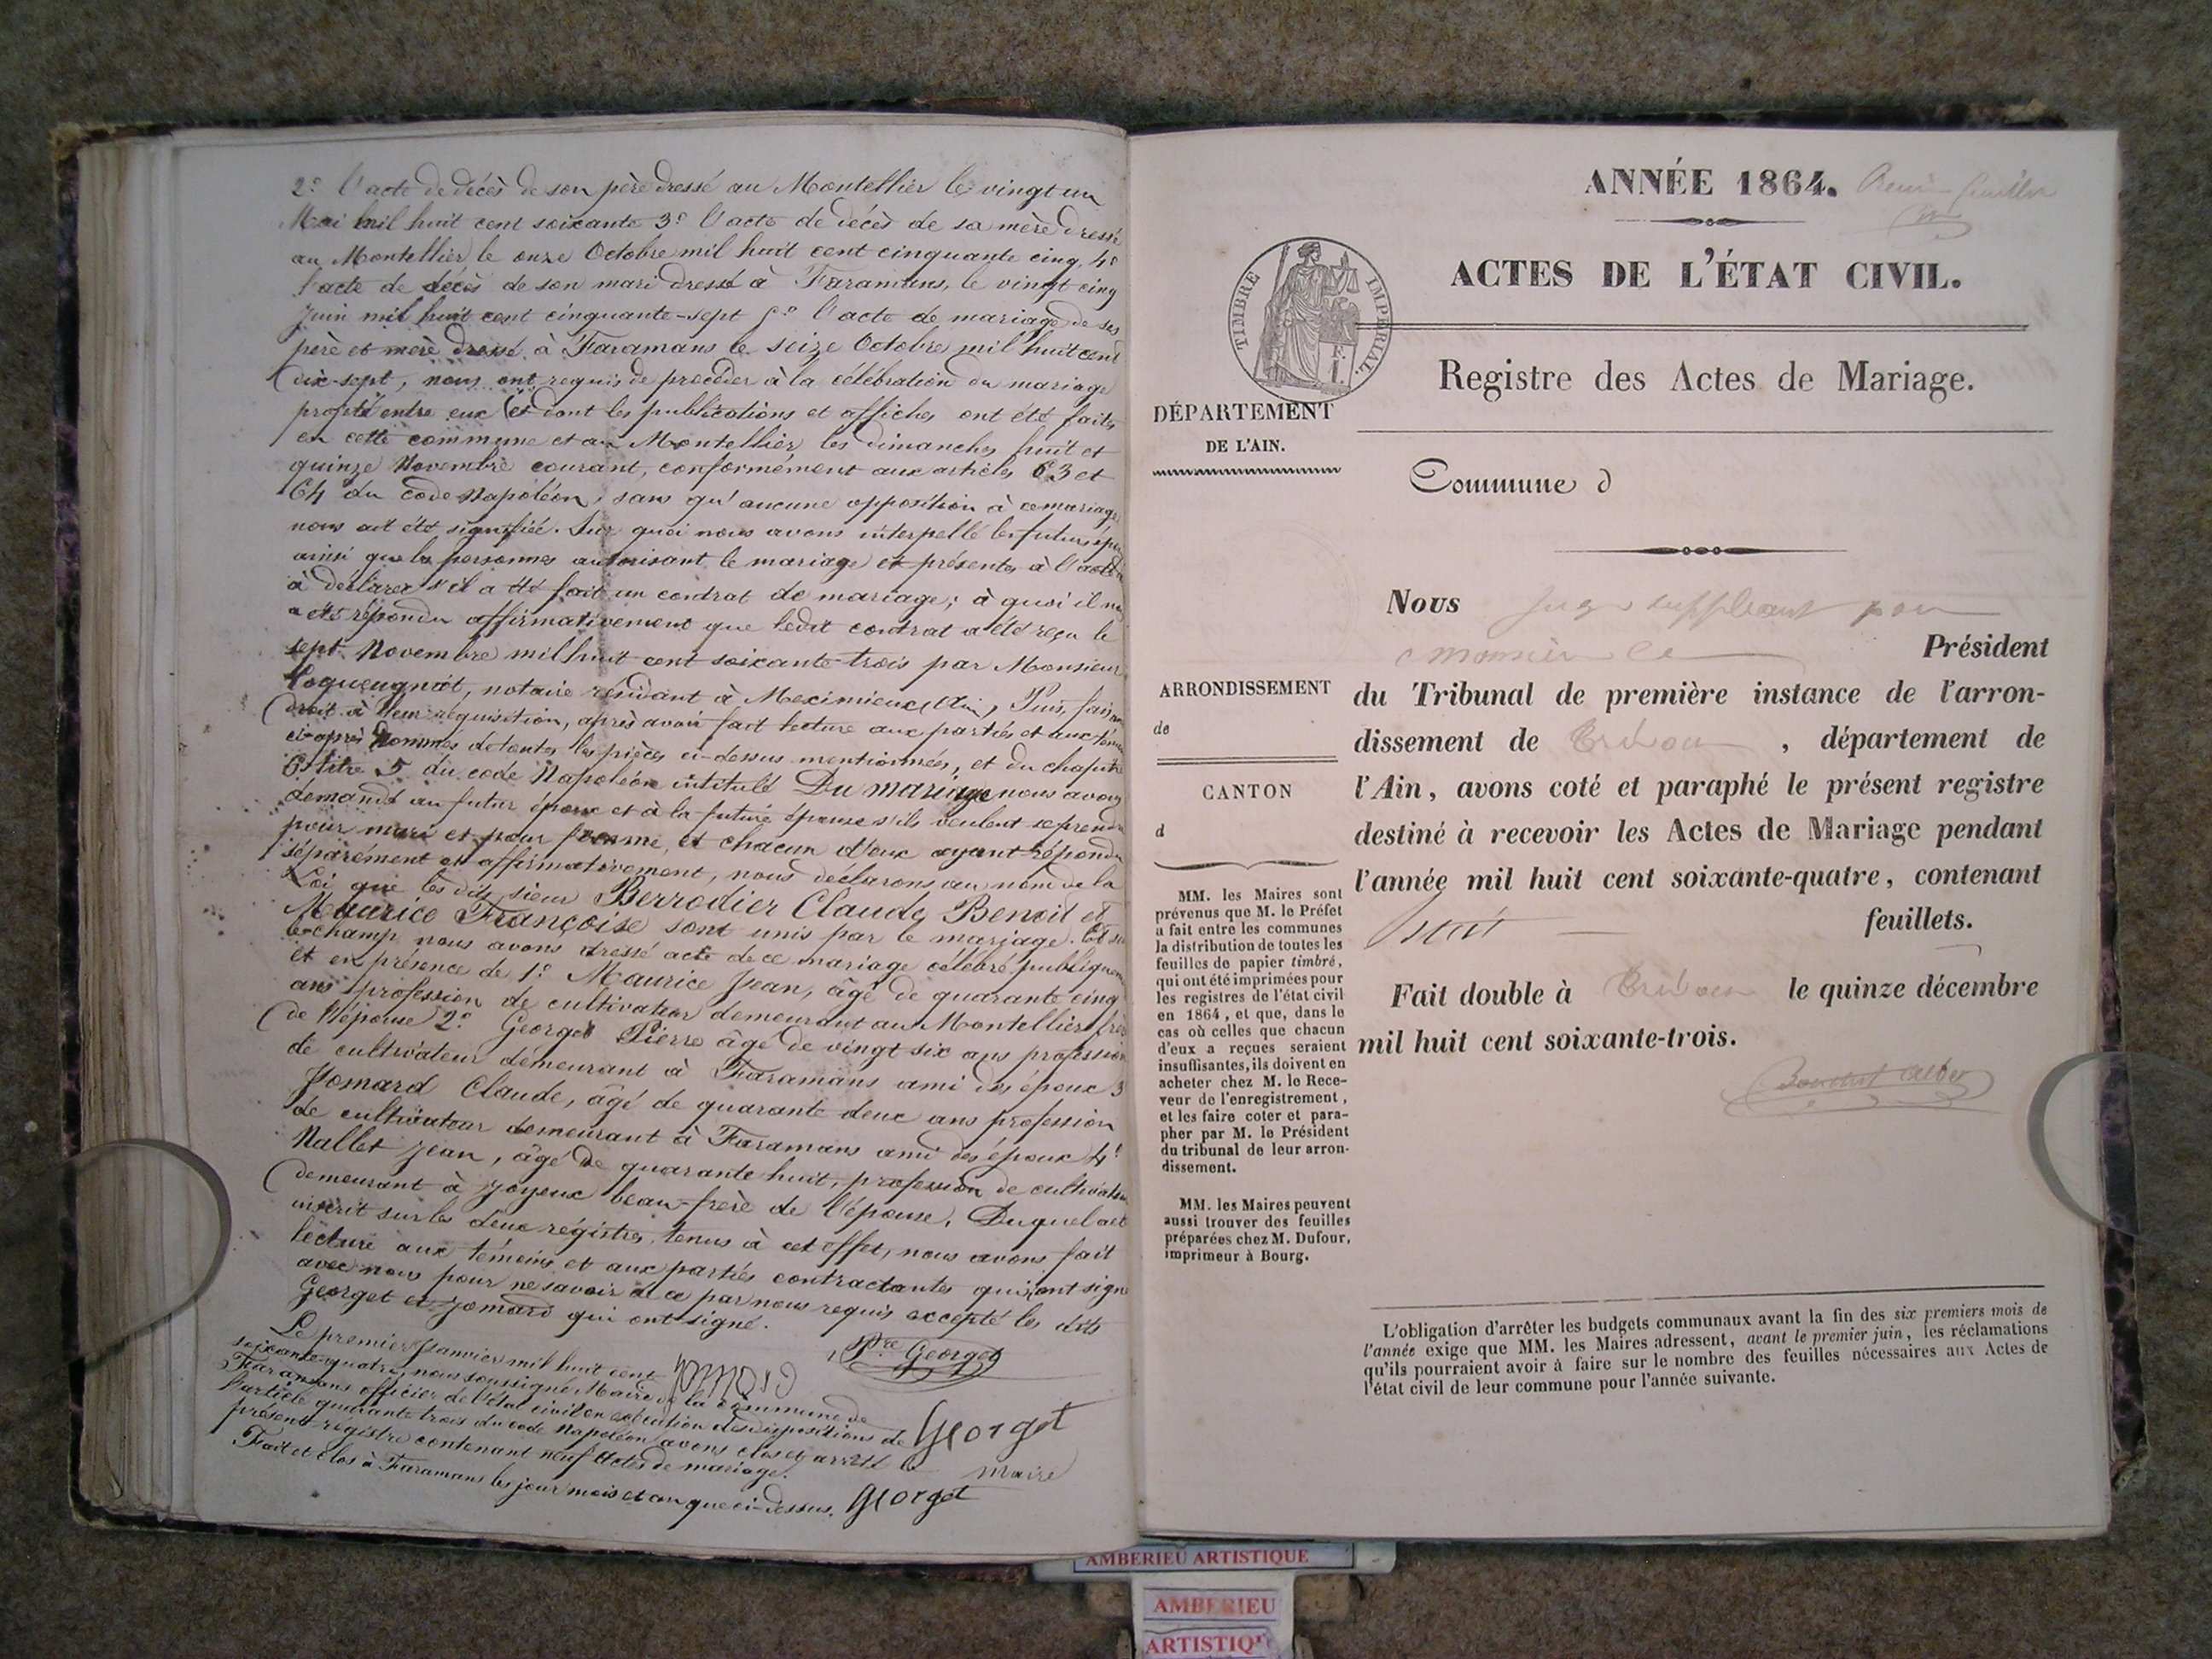 2º l'acte de décès de son père dressé au Montellier le vingt un
Mai mil huit cent soixante 3º l'acte de décès de sa mère dressé
au Montellier le onze Octobre mil huit cent cinquante cinq, 4º
l'acte de décès de son mari dressé à Faramans, le vingt cinq
Juin mil huit cent cinquante-sept 5º l'acte de mariage de ses
père et mère dressé à Faramans le seize Octobre mil huit cent
dix-sept, nous ont requis de procéder à la célébration du mariage
projeté entre eux et dont les publications et affiches ont été faites
en cette commune et au Montellier, les dimanches huit et
quinze Novembre courant, conformément aux articles 63 et
64 du code Napoléon, sans qu'aucune opposition à ce mariage
nous ait été signifiée. Sur quoi nous avons interpellé les futurs
ainsi que les personnes autorisant le mariage et présentes à l'acte
à déclarer s'il a été fait un contrat de mariage; à quoi il
a été répondu affirmativement que ledit contrat a été reçu le
sept Novembre mil huit cent soixante-trois par Monsieur
notaire résidant à Meximieux (Ain), Puis,
droit à leur réquisition, après avoir fait lecture aux parties et aux
ci-après nommés de toutes les pièces ci-dessus mentionnées, et du chapitre
6 titre 5 du code Napoléon intitulé Du mariage nous avons
demandé au futur époux et à la future épouse s'ils veulent se prendre
pour mari et pour femme, et chacun d'eux ayant répondu
séparément et affirmativement, nous déclarons au nom de la
Loi que les dits sieur Berrodier Claude Benoit et
Maurice Françoise sont unis par le mariage. Et
le champ nous avons dressé acte de ce mariage célébré
et en présence de 1º Maurice Jean, âgé de quarante cinq
ans profession de cultivateur demeurant au Montellier
de l'épouse 2º Georget Pierre âgé de vingt six ans profession
de cultivateur demeurant à Faramans ami des époux 3
Jomard Claude, âgé de quarante deux ans profession
de cultivateur demeurant à Faramans ami des époux 4º
Nallet Jean, âgé de quarante huit, profession de cultivateur
demeurant à Joyeux beau-frère de l'épouse. Duquel acte
inscrit sur les deux registres tenus à cet effet, nous avons fait
lecture aux témoins et aux parties contractantes qui ont signé
avec nous pour ne savoir de ce par nous requis excepté les dits
Georget et Jomard qui ont signé.
Pre Georget
Jomard
Le premier Janvier mil huit cent
soixante-quatre, nous soussigné, Maire de la commune de
Faramans officier de l'état civil en exécution des dispositions de
l'article quarante trois du code Napoléon avons clos et arrêté le
présent registre contenant neuf actes de mariage.
Fait et clos à Faramans les jour mois et an que ci-dessus.
Georget
maire
Georget
ANNÉE 1864.
ACTES DE L'ÉTAT CIVIL.
TIMBRE IMPERIAL.
Registre des Actes de Mariage.
DÉPARTEMENT
DE L'AIN.
Commune d
Nous Juge suppléant pour
Président
ARRONDISSEMENT
de
du Tribunal de première instance de l'arron-
dissement de Trévoux , département de
l'Ain, avons coté et paraphé le présent registre
destiné à recevoir les Actes de Mariage pendant
l'année mil huit cent soixante-quatre, contenant
feuillets.
Fait double à Trévoux le quinze décembre
mil huit cent soixante-trois.
CANTON
d
MM. les Maires sont
prévenus que M. le Préfet
a fait entre les communes
la distribution de toutes les
feuilles de papier timbré,
qui ont été imprimées pour
les registres de l'état civil
en 1864, et que, dans le
cas où celles que chacun
d'eux a reçues seraient
insuffisantes, ils doivent en
acheter chez M. le Rece-
veur de l'enregistrement,
et les faire coter et para-
pher par M. le Président
du tribunal de leur arron-
dissement.
MM. les Maires peuvent
aussi trouver des feuilles
préparées chez M. Dufour,
imprimeur à Bourg.
L'obligation d'arrêter les budgets communaux avant la fin des six premiers mois de
l'année exige que MM. les Maires adressent, avant le premier juin, les réclamations
qu'ils pourraient avoir à faire sur le nombre des feuilles nécessaires aux Actes de
l'état civil de leur commune pour l'année suivante.
AMBERIEU ARTISTIQUE
AMBERIEU
ARTISTIQU